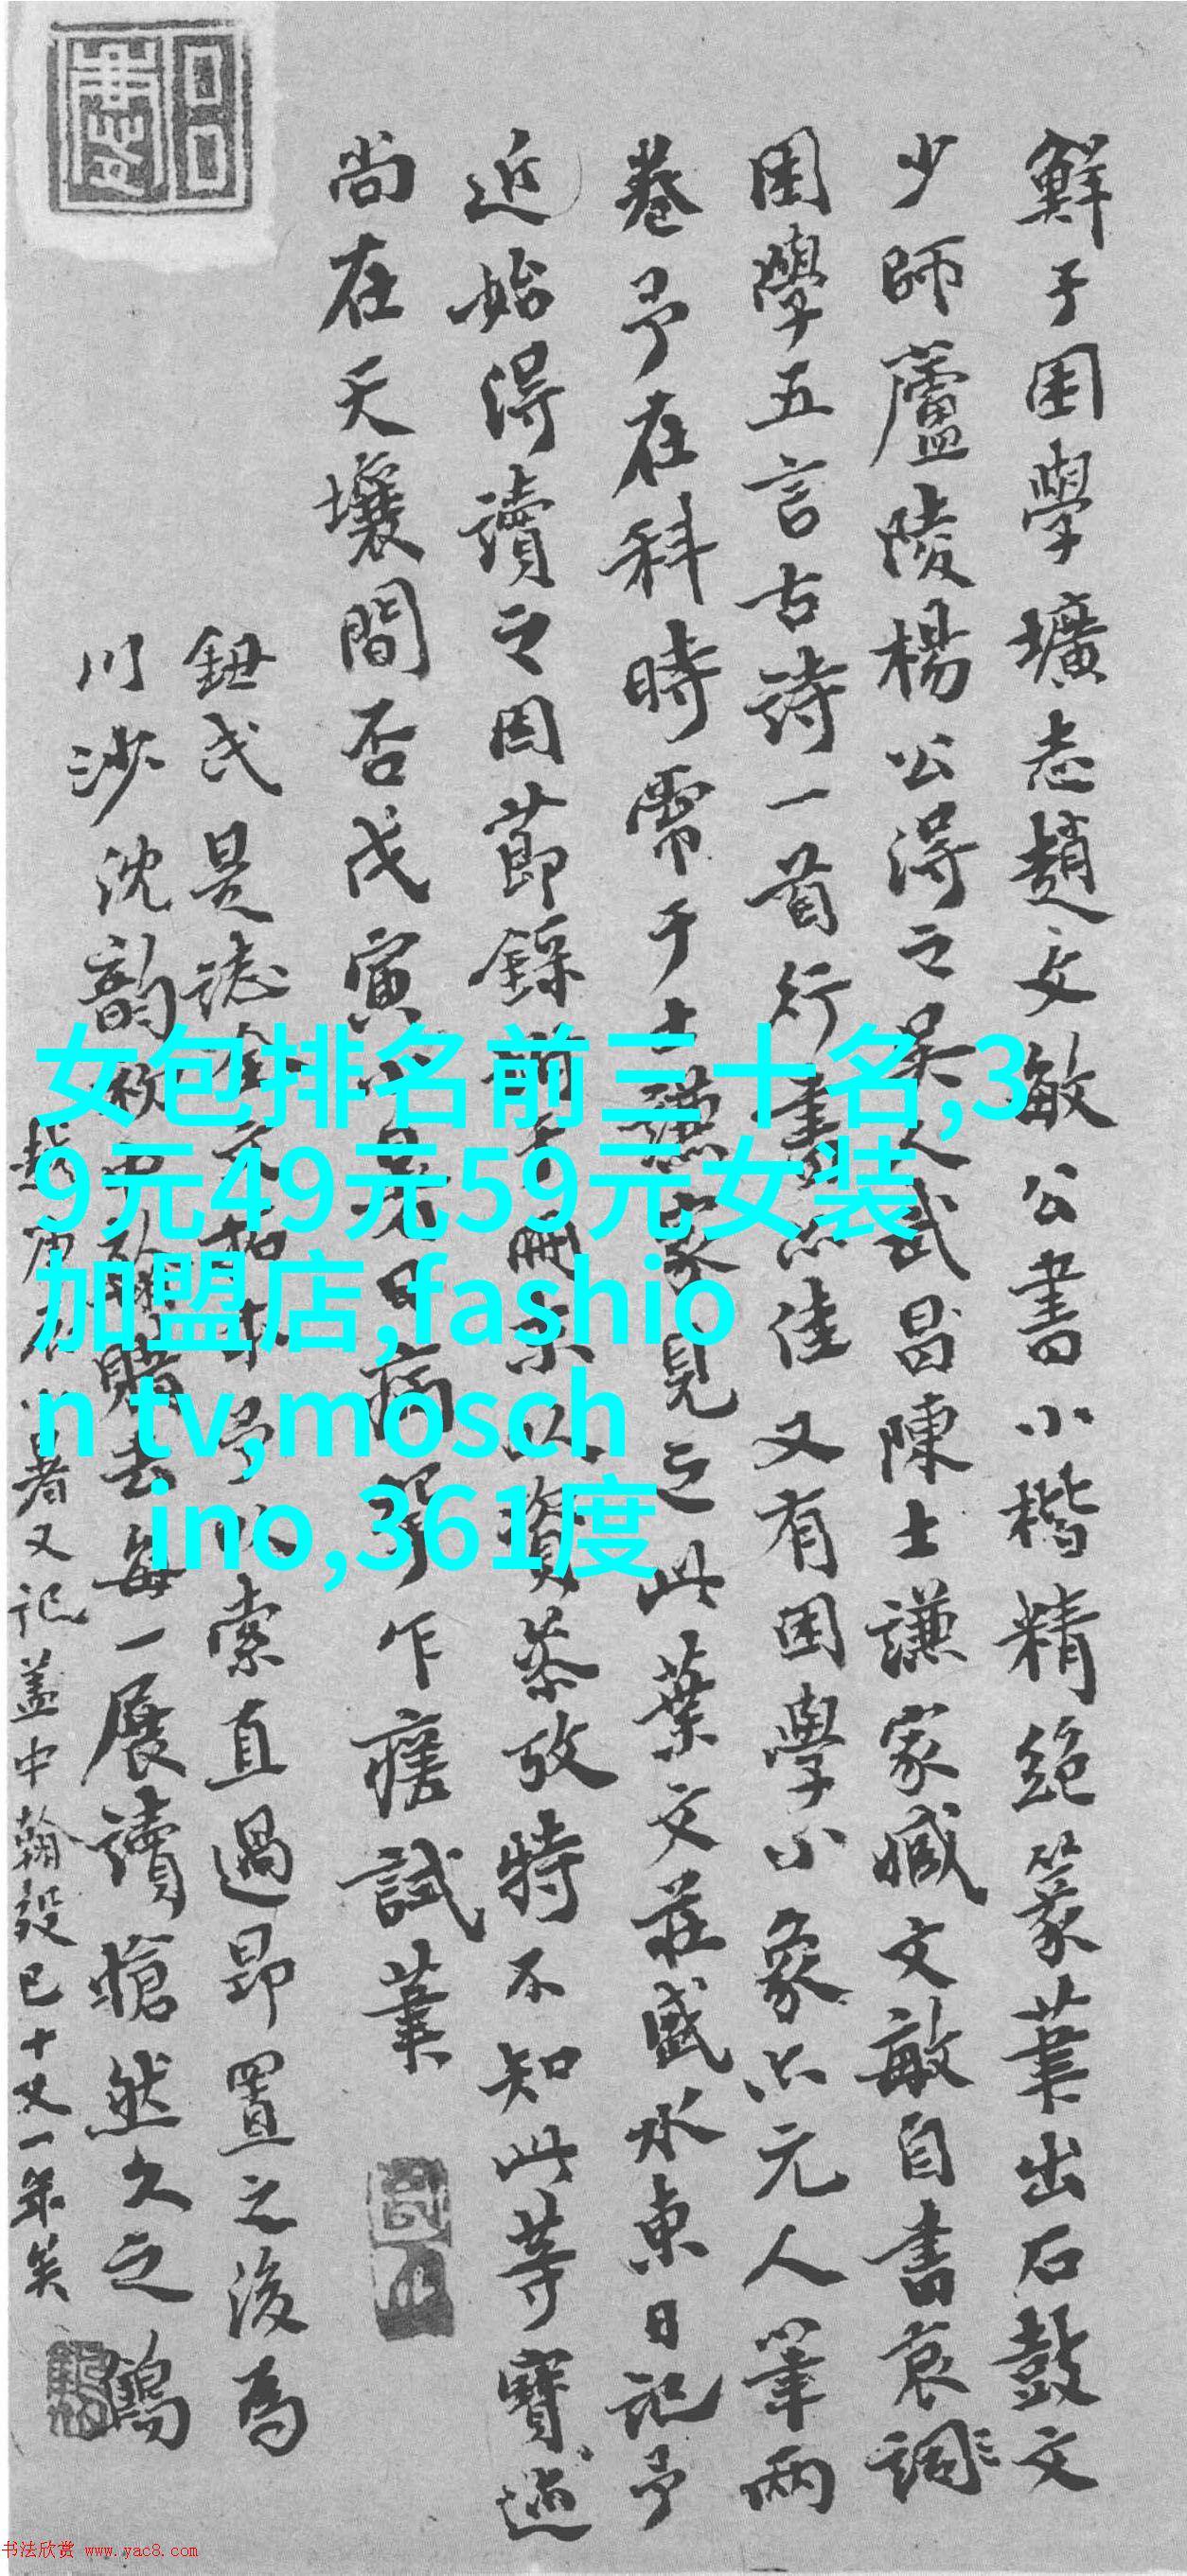 鮮于困學壙志趙文敏公書小楷精絕篆筆出石鼓文
少師蘆陵楊公得之吳人武昌陳士謙家臧文敏自書哀詞
困學五言古詩一首行書亦佳又有困學小象亦元人筆兩
卷予在科時常于士謙家見之此葉文莊盛水東日記予
近始得讀之因節錄以資參攷特不知此等寶蹟
尚在天壤間否戊寅日病乍痊試筆
鈕氏是誌本予以索直過昂置之後為
川沙沈韵初中翰購去每一展讀愴然久之鶴
又記蓋中翰歿已十又一年矣
女包排名前三十名,3
9元49元59元女装
加盟店,fashio
n tv,mosch
ino,361度
书法欣赏 www.yac8.com